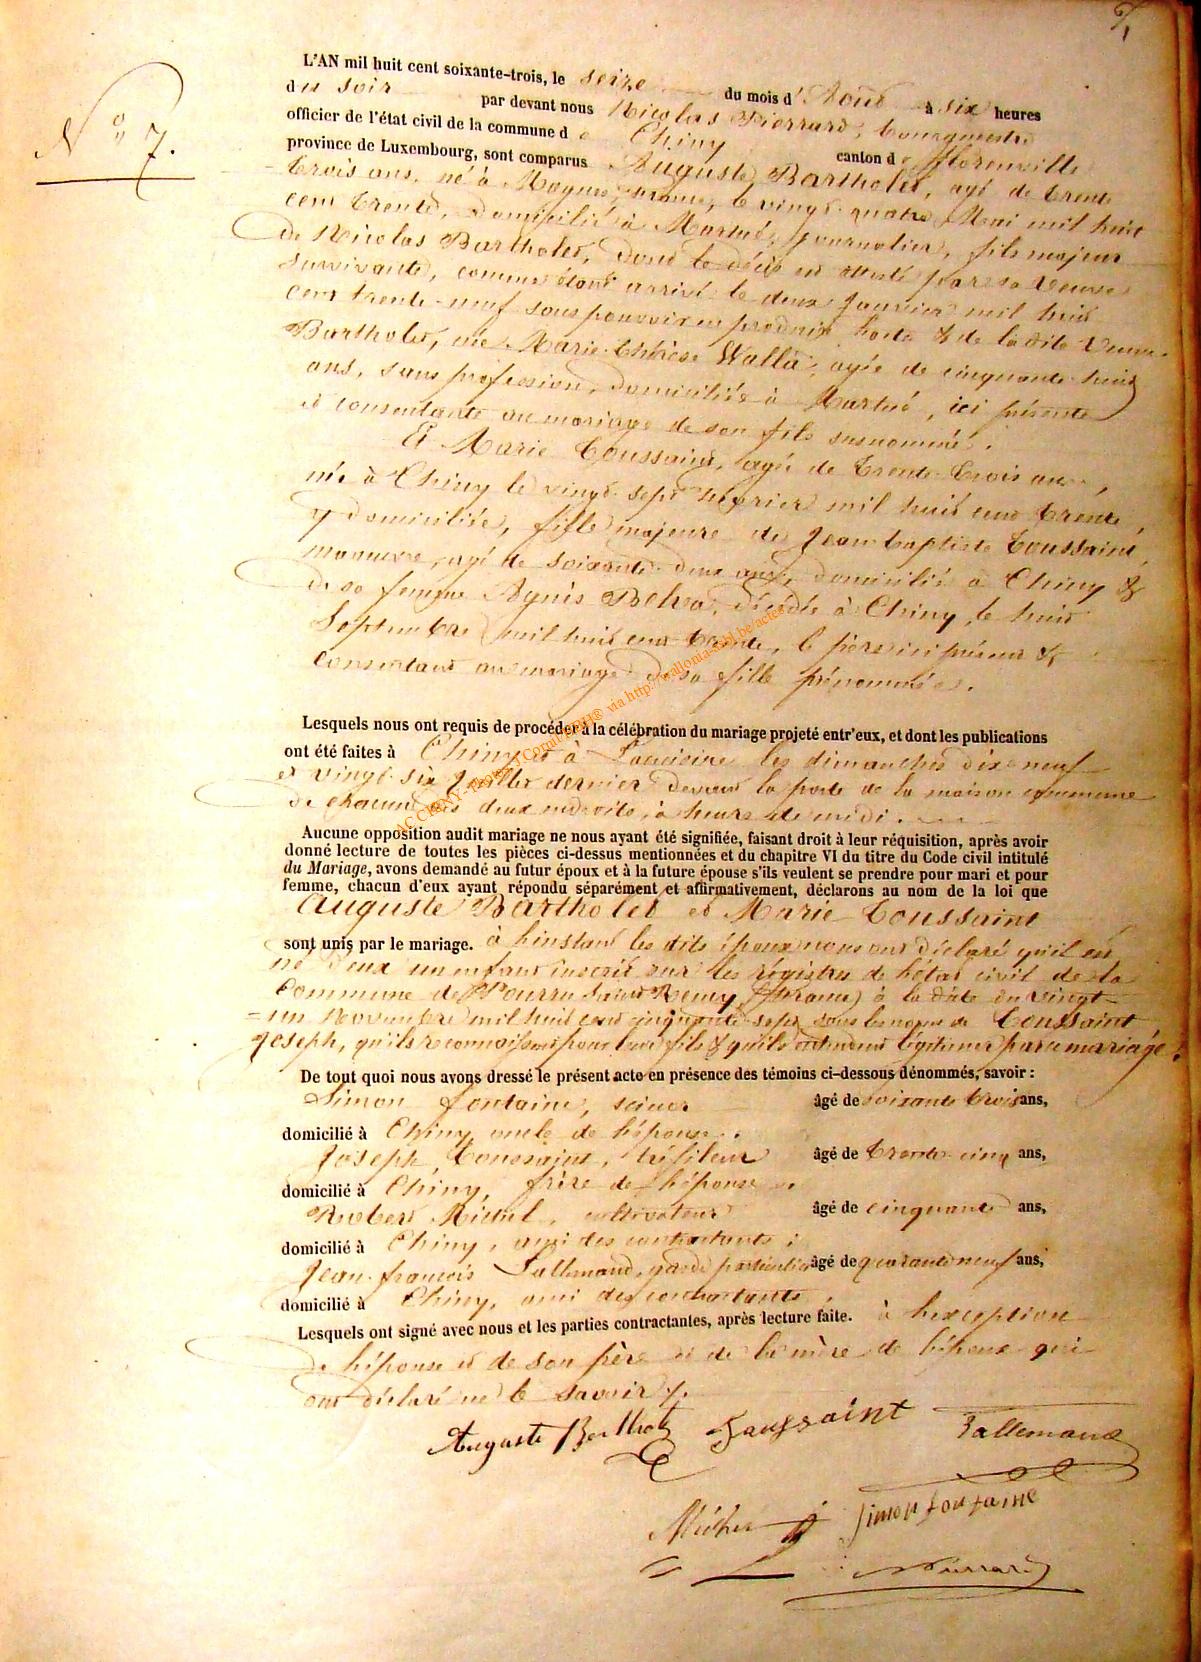 7,
N° 7.
L'AN mil huit cent soixante-trois, le seize du mois d'Août à six heures
du soir par devant nous Nicolas Pierrard, bourgmestre
officier de l'état civil de la commune de Chiny canton de Florenville
province de Luxembourg, sont comparus Auguste Bartholet, agé de trente
trois ans, né à france, le vingt-quatre Mai mil huit
cent trente, domicilié à Martué, journalier, fils majeur
de Nicolas Bartholet, dont le décès est attesté par sa veuve
survivante, comme étant arrivé le deux Janvier mil huit
cent trente-neuf sans pouvoir en produire l'acte & de la dite veuve
Bartholet, née Marie-Thérèse Walla, agée de cinquante-huit
ans, sans profession, domiciliée à Martué, ici présente
et consentante au mariage de son fils susnommé.
Et Marie Toussaint, agée de trente-trois ans,
née à Chiny le vingt-sept février mil huit cent trente,
y domiciliée, fille majeure de Jean-baptiste Toussaint
manœuvre, agé de soixante-deux ans, domicilié à Chiny &
de sa femme Agnès Behva, décédée à Chiny, le huit
Septembre mil huit cent trente, le père ici présent &
consentant au mariage de sa fille prénommée.
Lesquels nous ont requis de procéder à la célébration du mariage projeté entr'eux, et dont les publications
ont été faites à Chiny et à les dimanches dix-neuf
et vingt-six Juillet dernier devant la porte de la maison commune
de chacun des deux endroits, à heure de midi.
Aucune opposition audit mariage ne nous ayant été signifiée, faisant droit à leur réquisition, après avoir
donné lecture de toutes les pièces ci-dessus mentionnées et du chapitre VI du titre du Code civil intitulé
du Mariage, avons demandé au futur époux et à la future épouse s'ils veulent se prendre pour mari et pour
femme, chacun d'eux ayant répondu séparément et affirmativement, déclarons au nom de la loi que
Auguste Bartholet et Marie Toussaint
sont unis par le mariage. à l'instant les dits époux nous ont déclaré qu'il est
né d'eux un enfant inscrit sur les régistres de l'état civil de la
commune de Pourru Saint Remy, (france) à la date du vingt-
=un Novembre mil huit cent cinquante-sept sous le nom de Toussaint
Joseph, qu'ils reconnoissent pour leur fils & qu'ils entendent légitimer par ce mariage.
De tout quoi nous avons dressé le présent acte en présence des témoins ci-dessous dénommés, savoir :
Simon fontaine, scieur âgé de soixante trois ans,
domicilié à Chiny, oncle de l'épouse.
Joseph Toussaint, tréfileur âgé de trente-cinq ans,
domicilié à Chiny, frère de l'épouse.
Hubert Michel, cultivateur âgé de cinquante ans,
domicilié à Chiny, ami des contractants ;
Jean-françois Lallemand, garde particulier âgé de quarante neuf ans,
domicilié à Chiny, ami des contractants,
Lesquels ont signé avec nous et les parties contractantes, après lecture faite. à l'exception
de l'épouse et de son père et de la mère de l'époux qui
ont déclaré ne le savoir /.
Auguste Barthol Toussaint Lallemand
Michel Simon fontaine
Pierrard